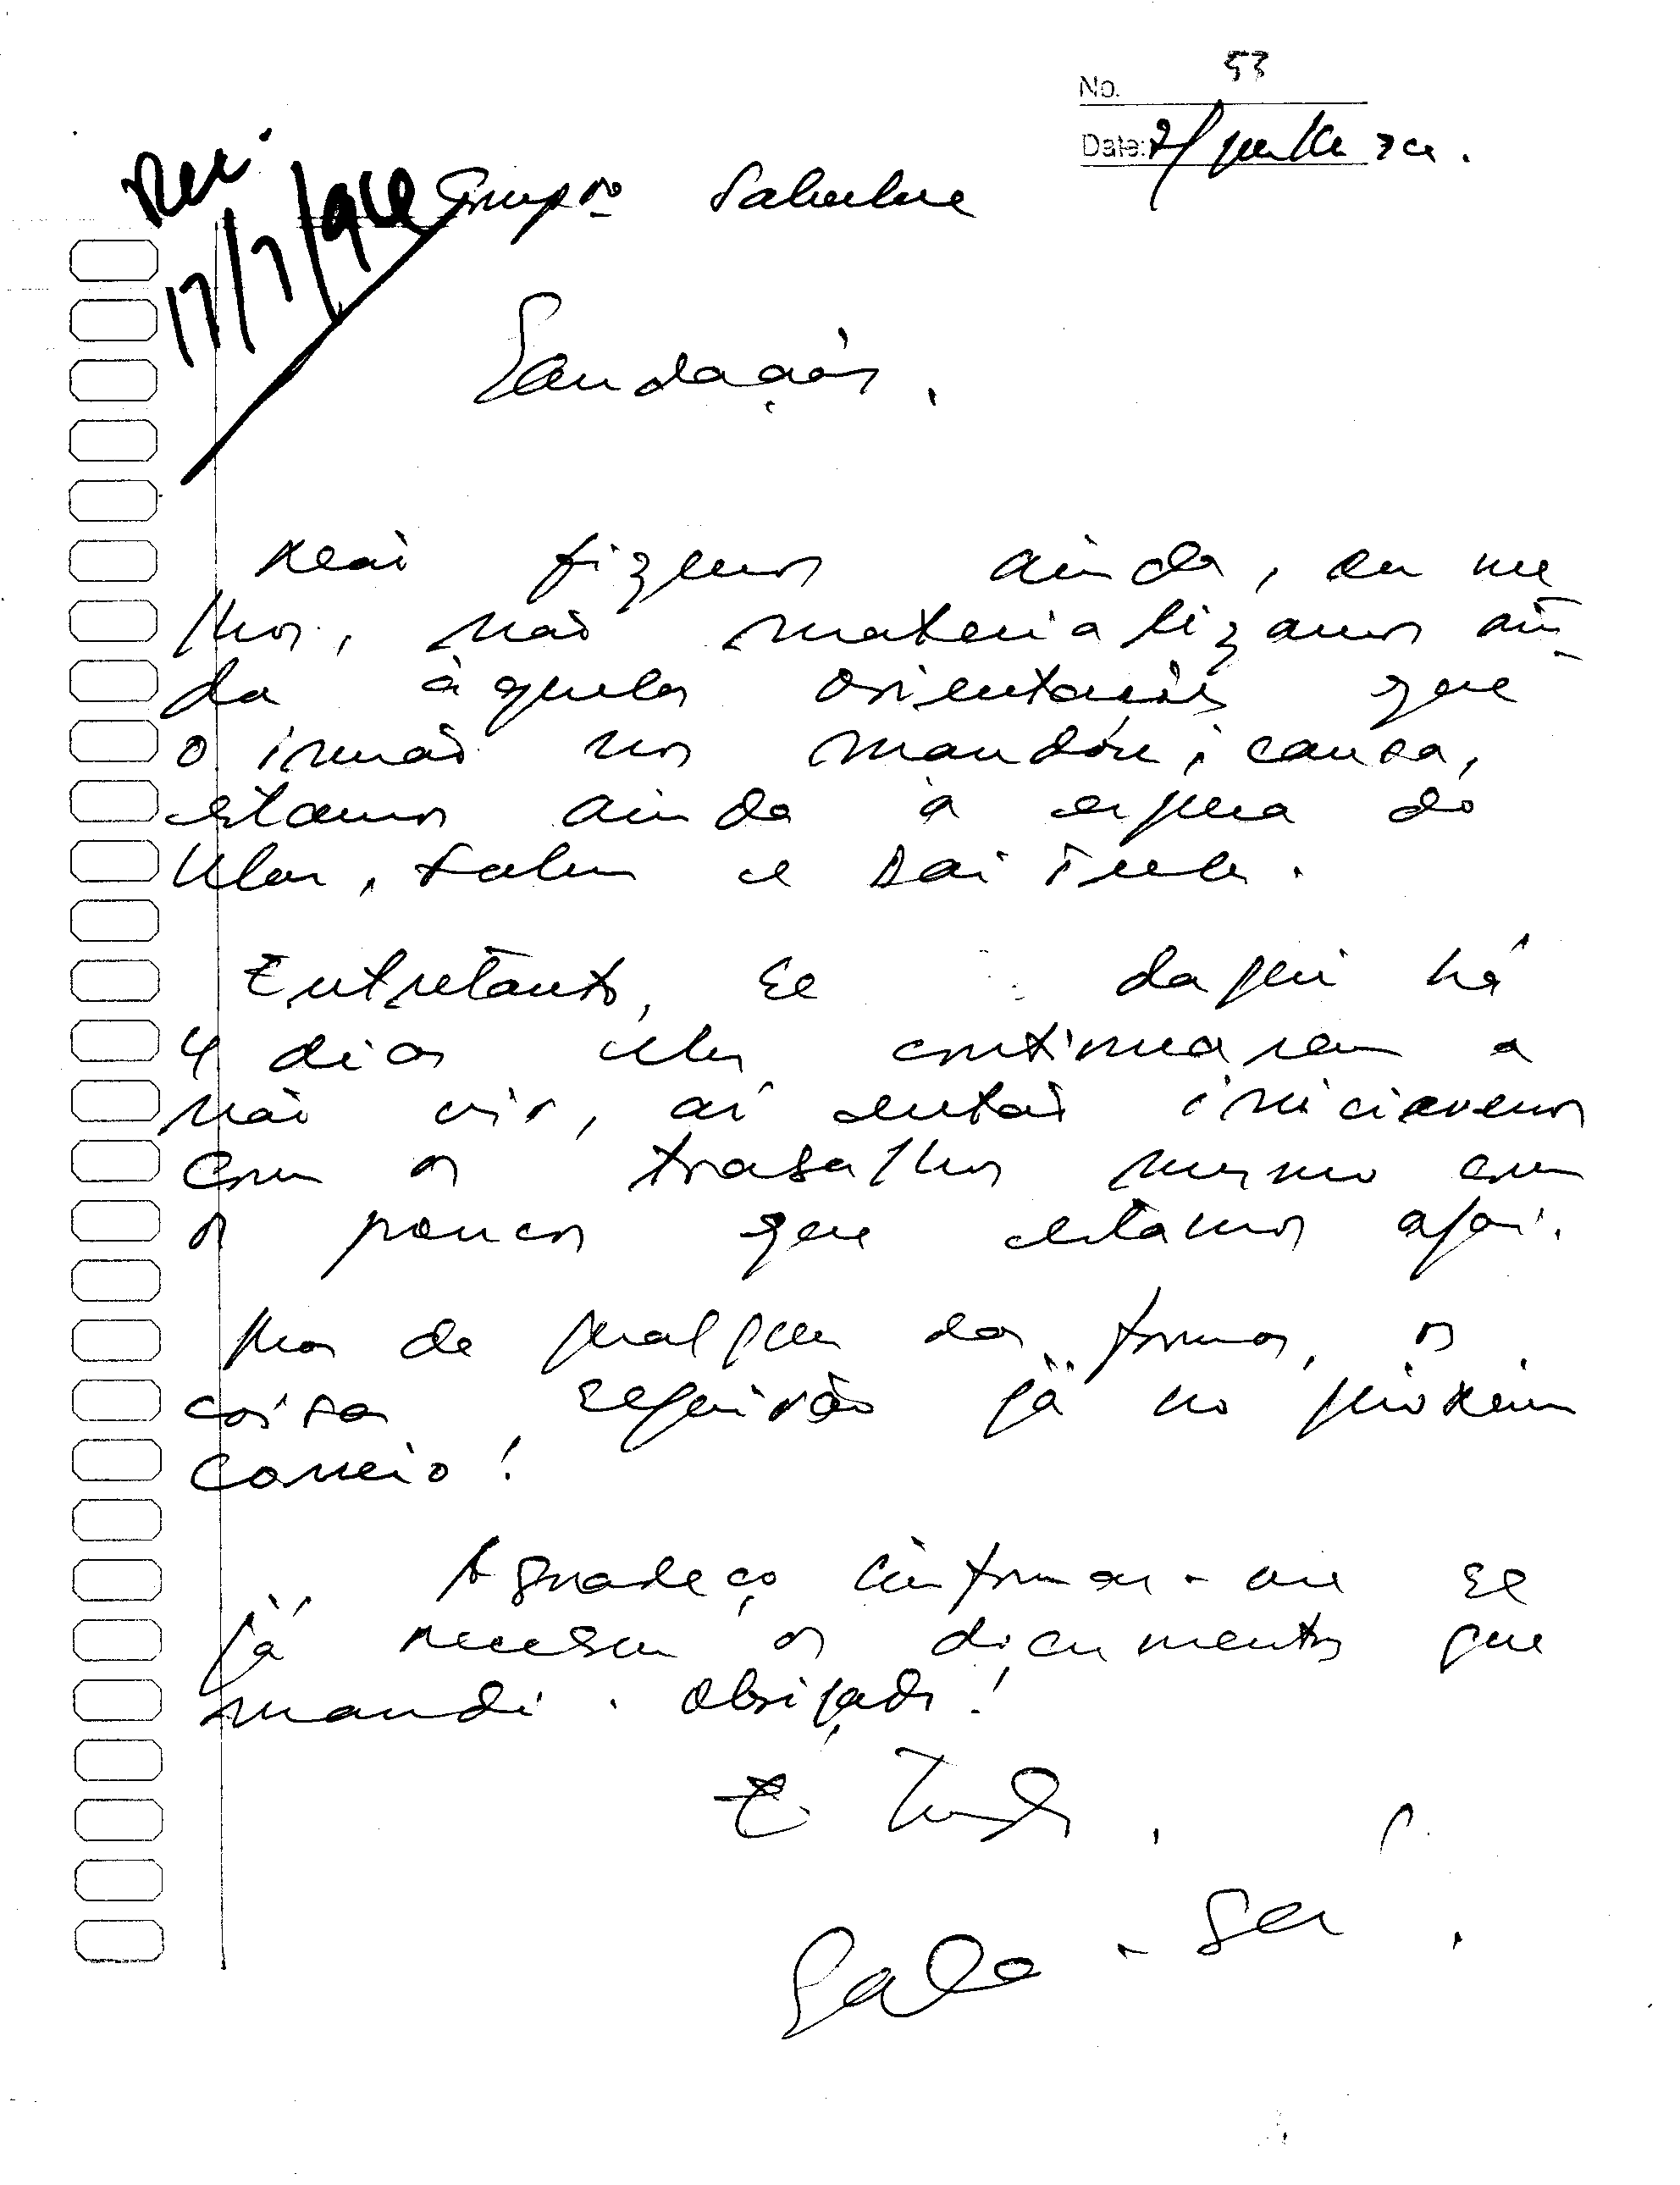 No. 53
Date:
Rec.
17/7/94
Saudações,
Não fizemos ainda, ou me
lhor, não materializamos ain-
da àquelas orientações que
o irmão nos mandou; causa,
estamos ainda à espera do
Ular, Saben e
Entretanto, se daqui há
4 dias eles continuarem a
não vir, aí então iniciaremos
com os trabalhos mesmo com
os poucos que estamos aqui.
Mas de qualquer das formas, as
coisas seguirão já no próximo
correio!
Agradeço informar-me se
já recebeu os documentos que
mandei. Obrigado!
É Tudo.